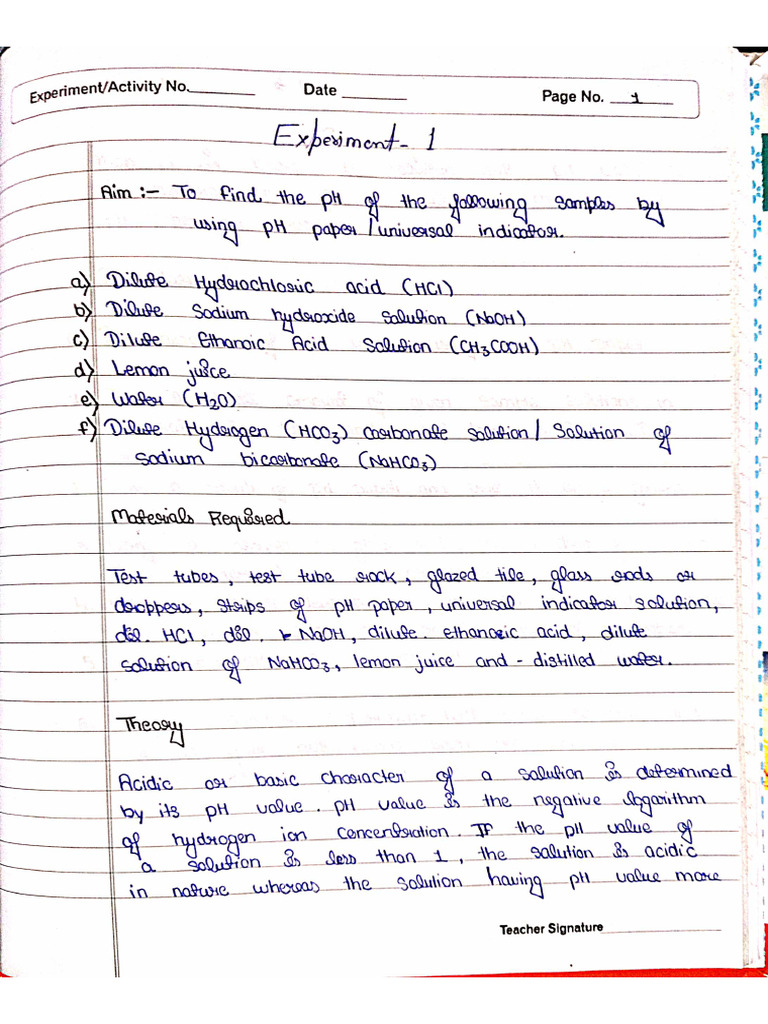 Experiment/Activity No.
Date
Page No. 1
Experiment - 1
Aim :- To find the pH of the following samples by
using pH paper / universal indicator.
a) Dilute Hydrochloric acid (HCl)
b) Dilute Sodium hydroxide solution (NaOH)
c) Dilute Ethanoic Acid Solution (CH3COOH)
d) Lemon juice
e) Water (H2O)
f) Dilute Hydrogen (HCO3) carbonate solution / Solution of
Sodium bicarbonate (NaHCO3)
Materials Required
Test tubes, test tube rack, glazed tile, glass rods or
droppers, strips of pH paper, universal indicator solution,
dil. HCl, dil. NaOH, dilute. ethanoic acid, dilute
solution of NaHCO3, lemon juice and - distilled water.
Theory
Acidic or basic character of a solution is determined
by its pH value. pH value is the negative logarithm
of hydrogen ion concentration. If the pH value of
a solution is less than 1, the solution is acidic
in nature whereas the solution having pH value more
Teacher Signature